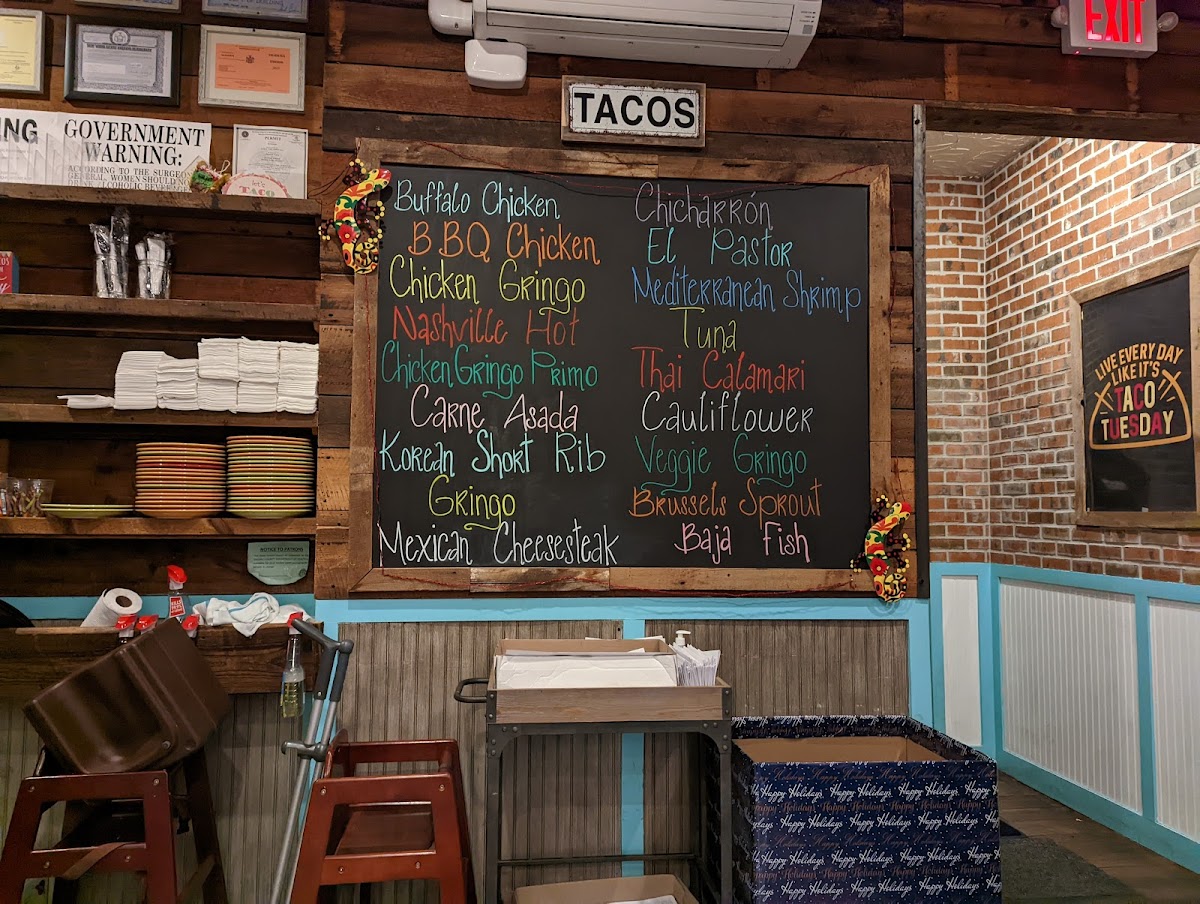 EXIT
TACOS
NING
GOVERNMENT
WARNING:
ACCORDING TO THE SURGEON
GENERAL, WOMEN SHOULD N
let's
TACO
Buffalo Chicken
BBQ Chicken
Chicken Gringo
Nashville Hot
Chicken Gringo Primo
Carne Asada
Korean Short Rib
Gringo
Mexican Cheesesteak
Chicharrón
El Pastor
Mediterranean Shrimp
Tuna
Thai Calamari
Cauliflower
Veggie Gringo
Brussels Sprout
Baja Fish
LIVE EVERY DAY
LIKE IT'S
TACO
TUESDAY
NOTICE TO PATRONS
Happy Holidays